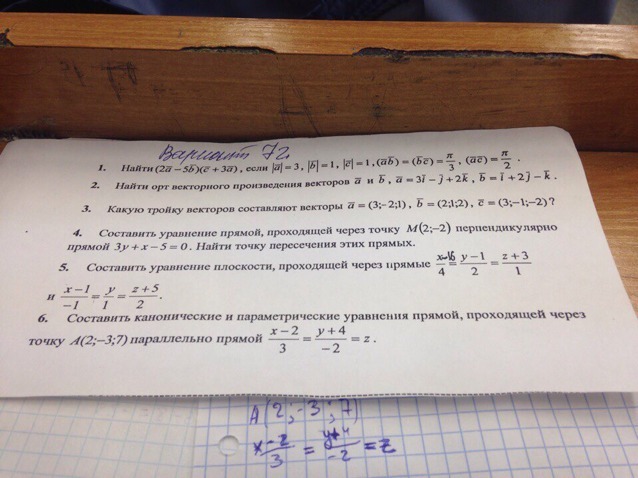 Вариант 72
1. Найти (2a̅ − 5b̅)(c̅ + 3a̅), если |a̅| = 3, |b̅| = 1, |c̅| = 1, (a̅b̅) = (b̅c̅) = π/3, (a̅c̅) = π/2.
2. Найти орт векторного произведения векторов a̅ и b̅, a̅ = 3i̅ − j̅ + 2k̅, b̅ = i̅ + 2j̅ − k̅.
3. Какую тройку векторов составляют векторы a̅ = (3;−2;1), b̅ = (2;1;2), c̅ = (3;−1;−2)?
4. Составить уравнение прямой, проходящей через точку M(2;−2) перпендикулярно
прямой 3y + x − 5 = 0. Найти точку пересечения этих прямых.
5. Составить уравнение плоскости, проходящей через прямые x−16/4 = y−1/2 = z+3/1
и x−1/−1 = y/1 = z+5/2.
6. Составить канонические и параметрические уравнения прямой, проходящей через
точку A(2;−3;7) параллельно прямой x−2/3 = y+4/−2 = z.
A(2;-3;7)
x-2/3 = y+4/-2 = z